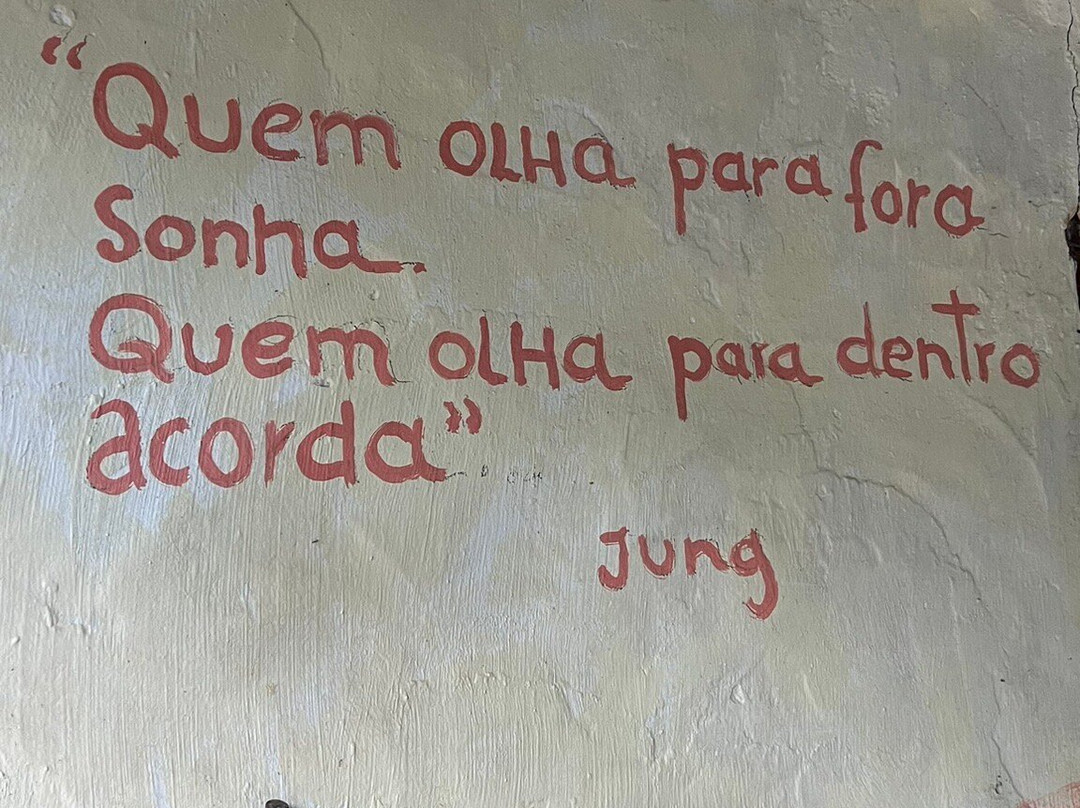 “Quem olha para fora
Sonha.
Quem olha para dentro
acorda”
Jung